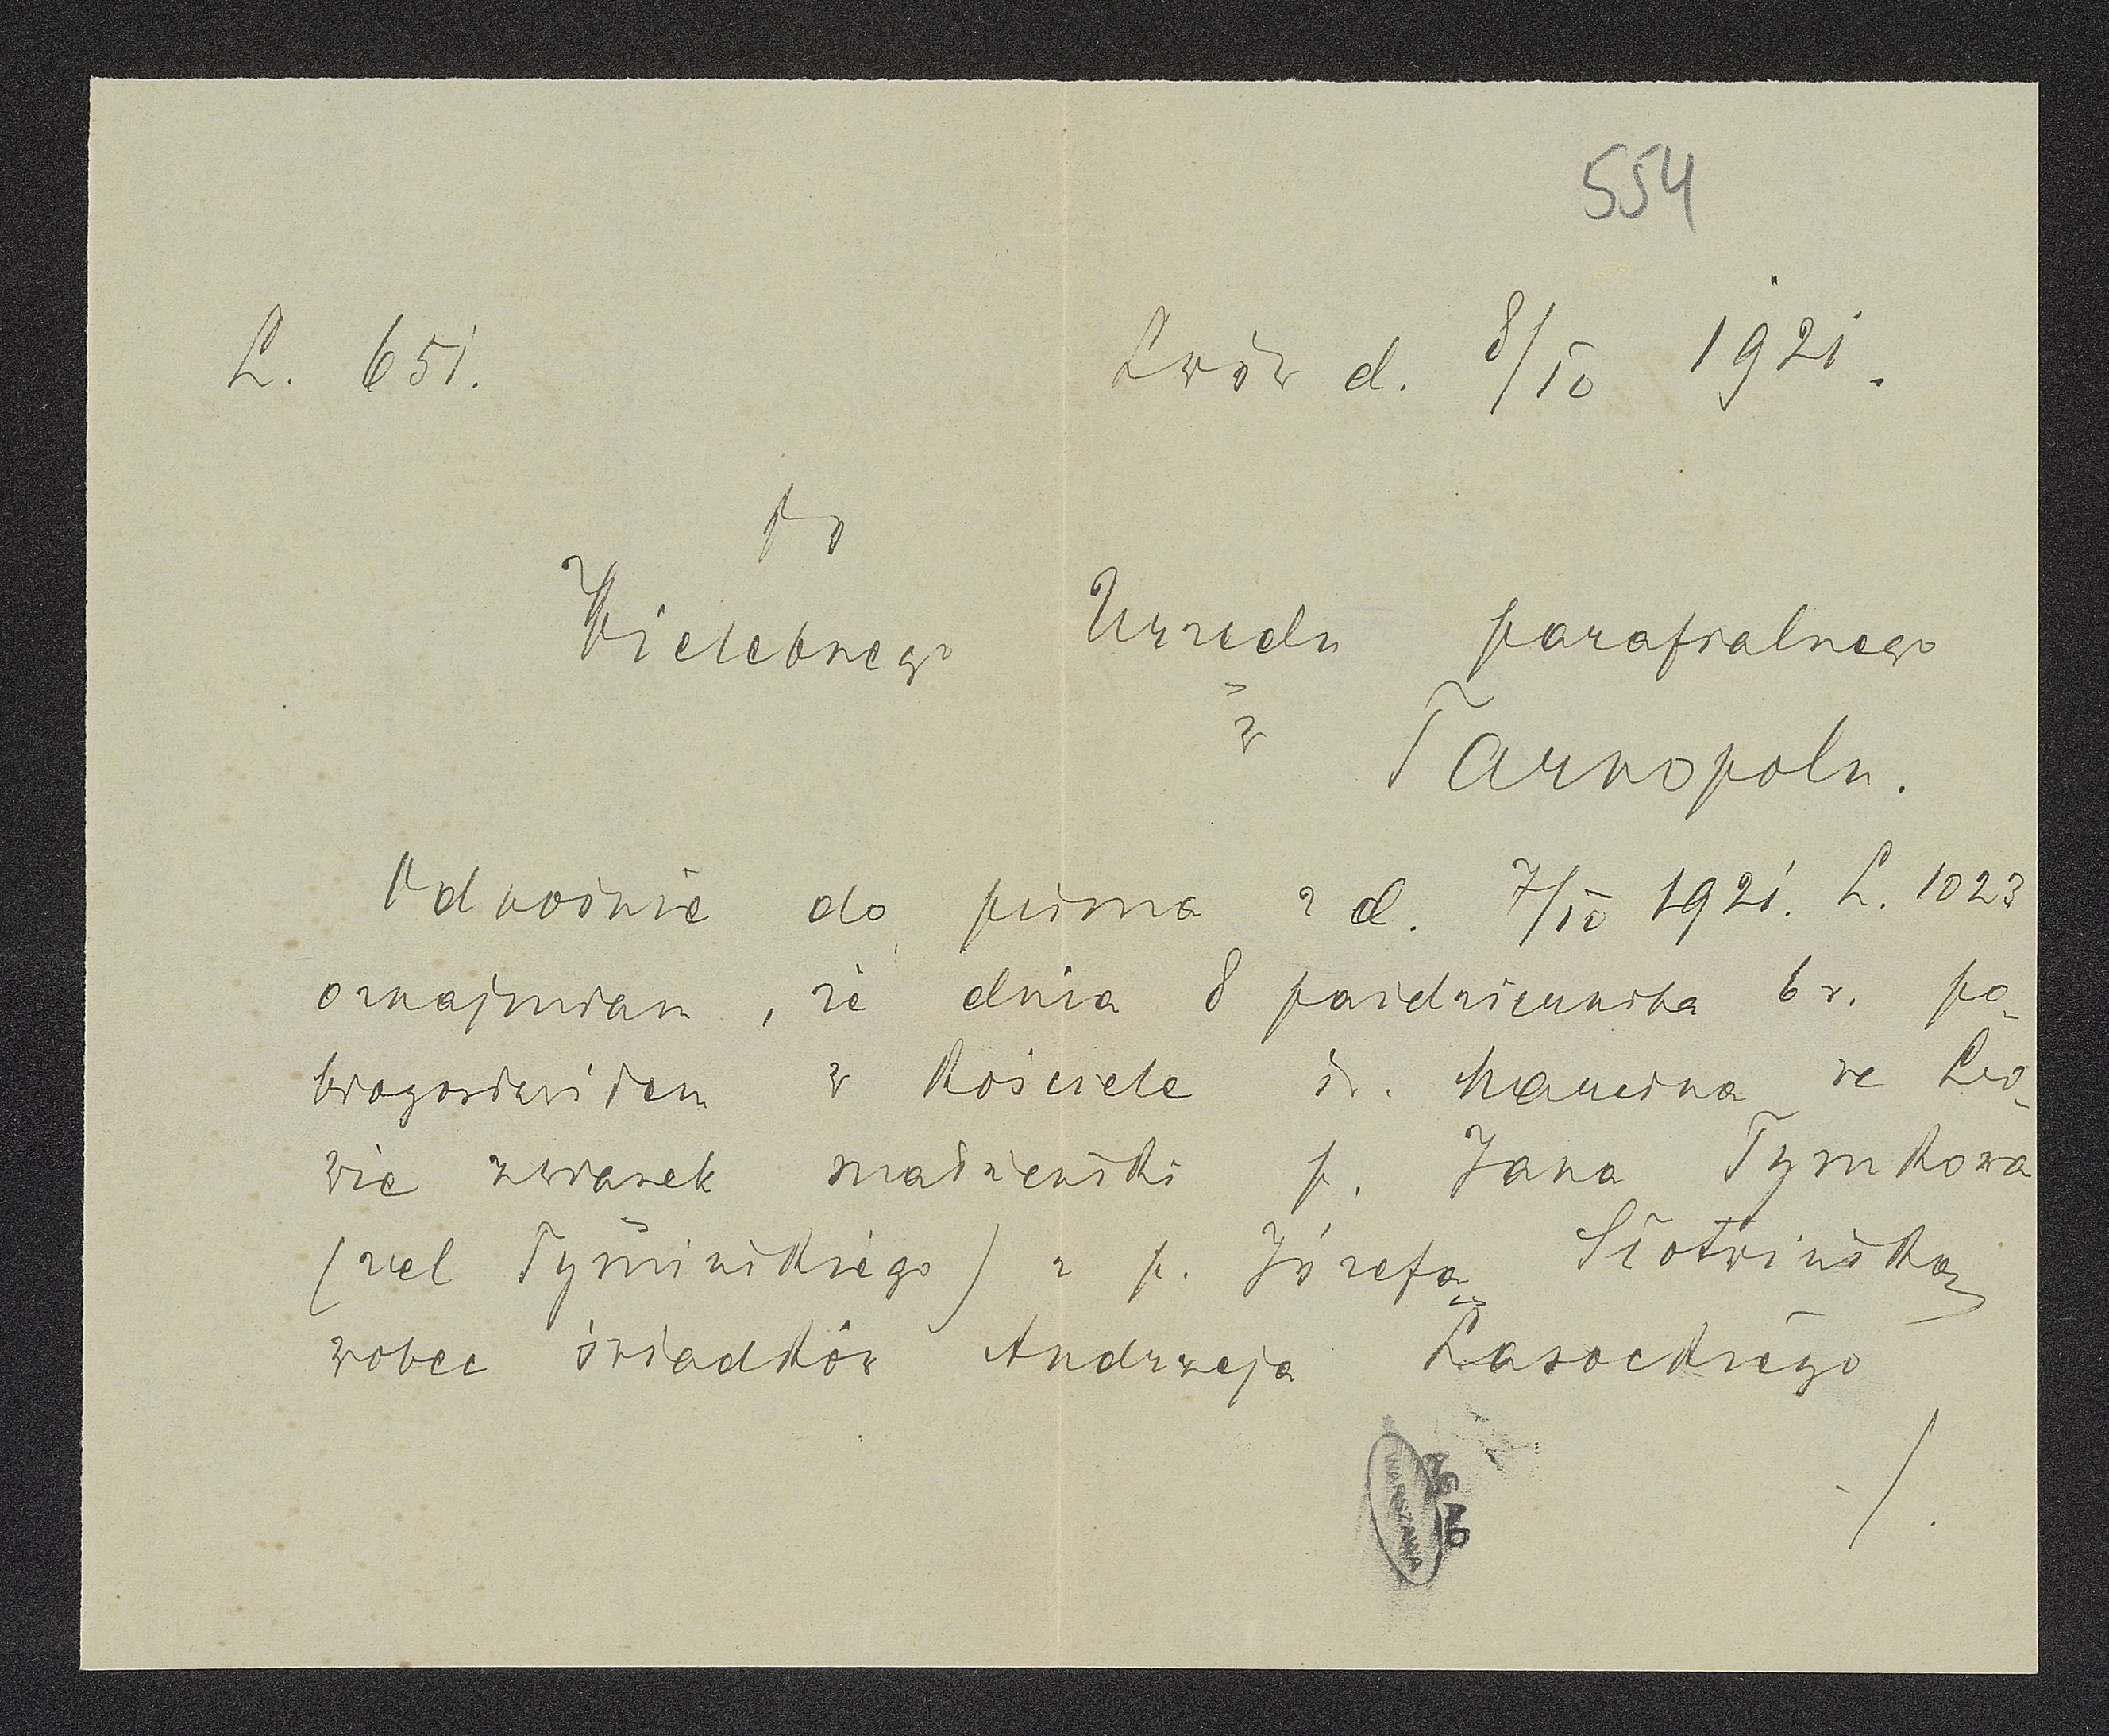 554
L. 651. Lwów d. 8/10 1921.
Do
Wielebnego Urzędu parafialnego
w Tarnopolu.
Odnośnie do pisma z d. 7/10 1921. L. 1023
oznajmiam, że dnia 8 października b r. po-
błogosławiłem w kościele św. Marcina we Lwo-
wie związek małżeński p. Jana Tymkowa
(vel Tymińskiego) z p. Józefą Słotwińską
wobec świadków Andrzeja Łasockiego
./.
AGAD
WARSZAWA